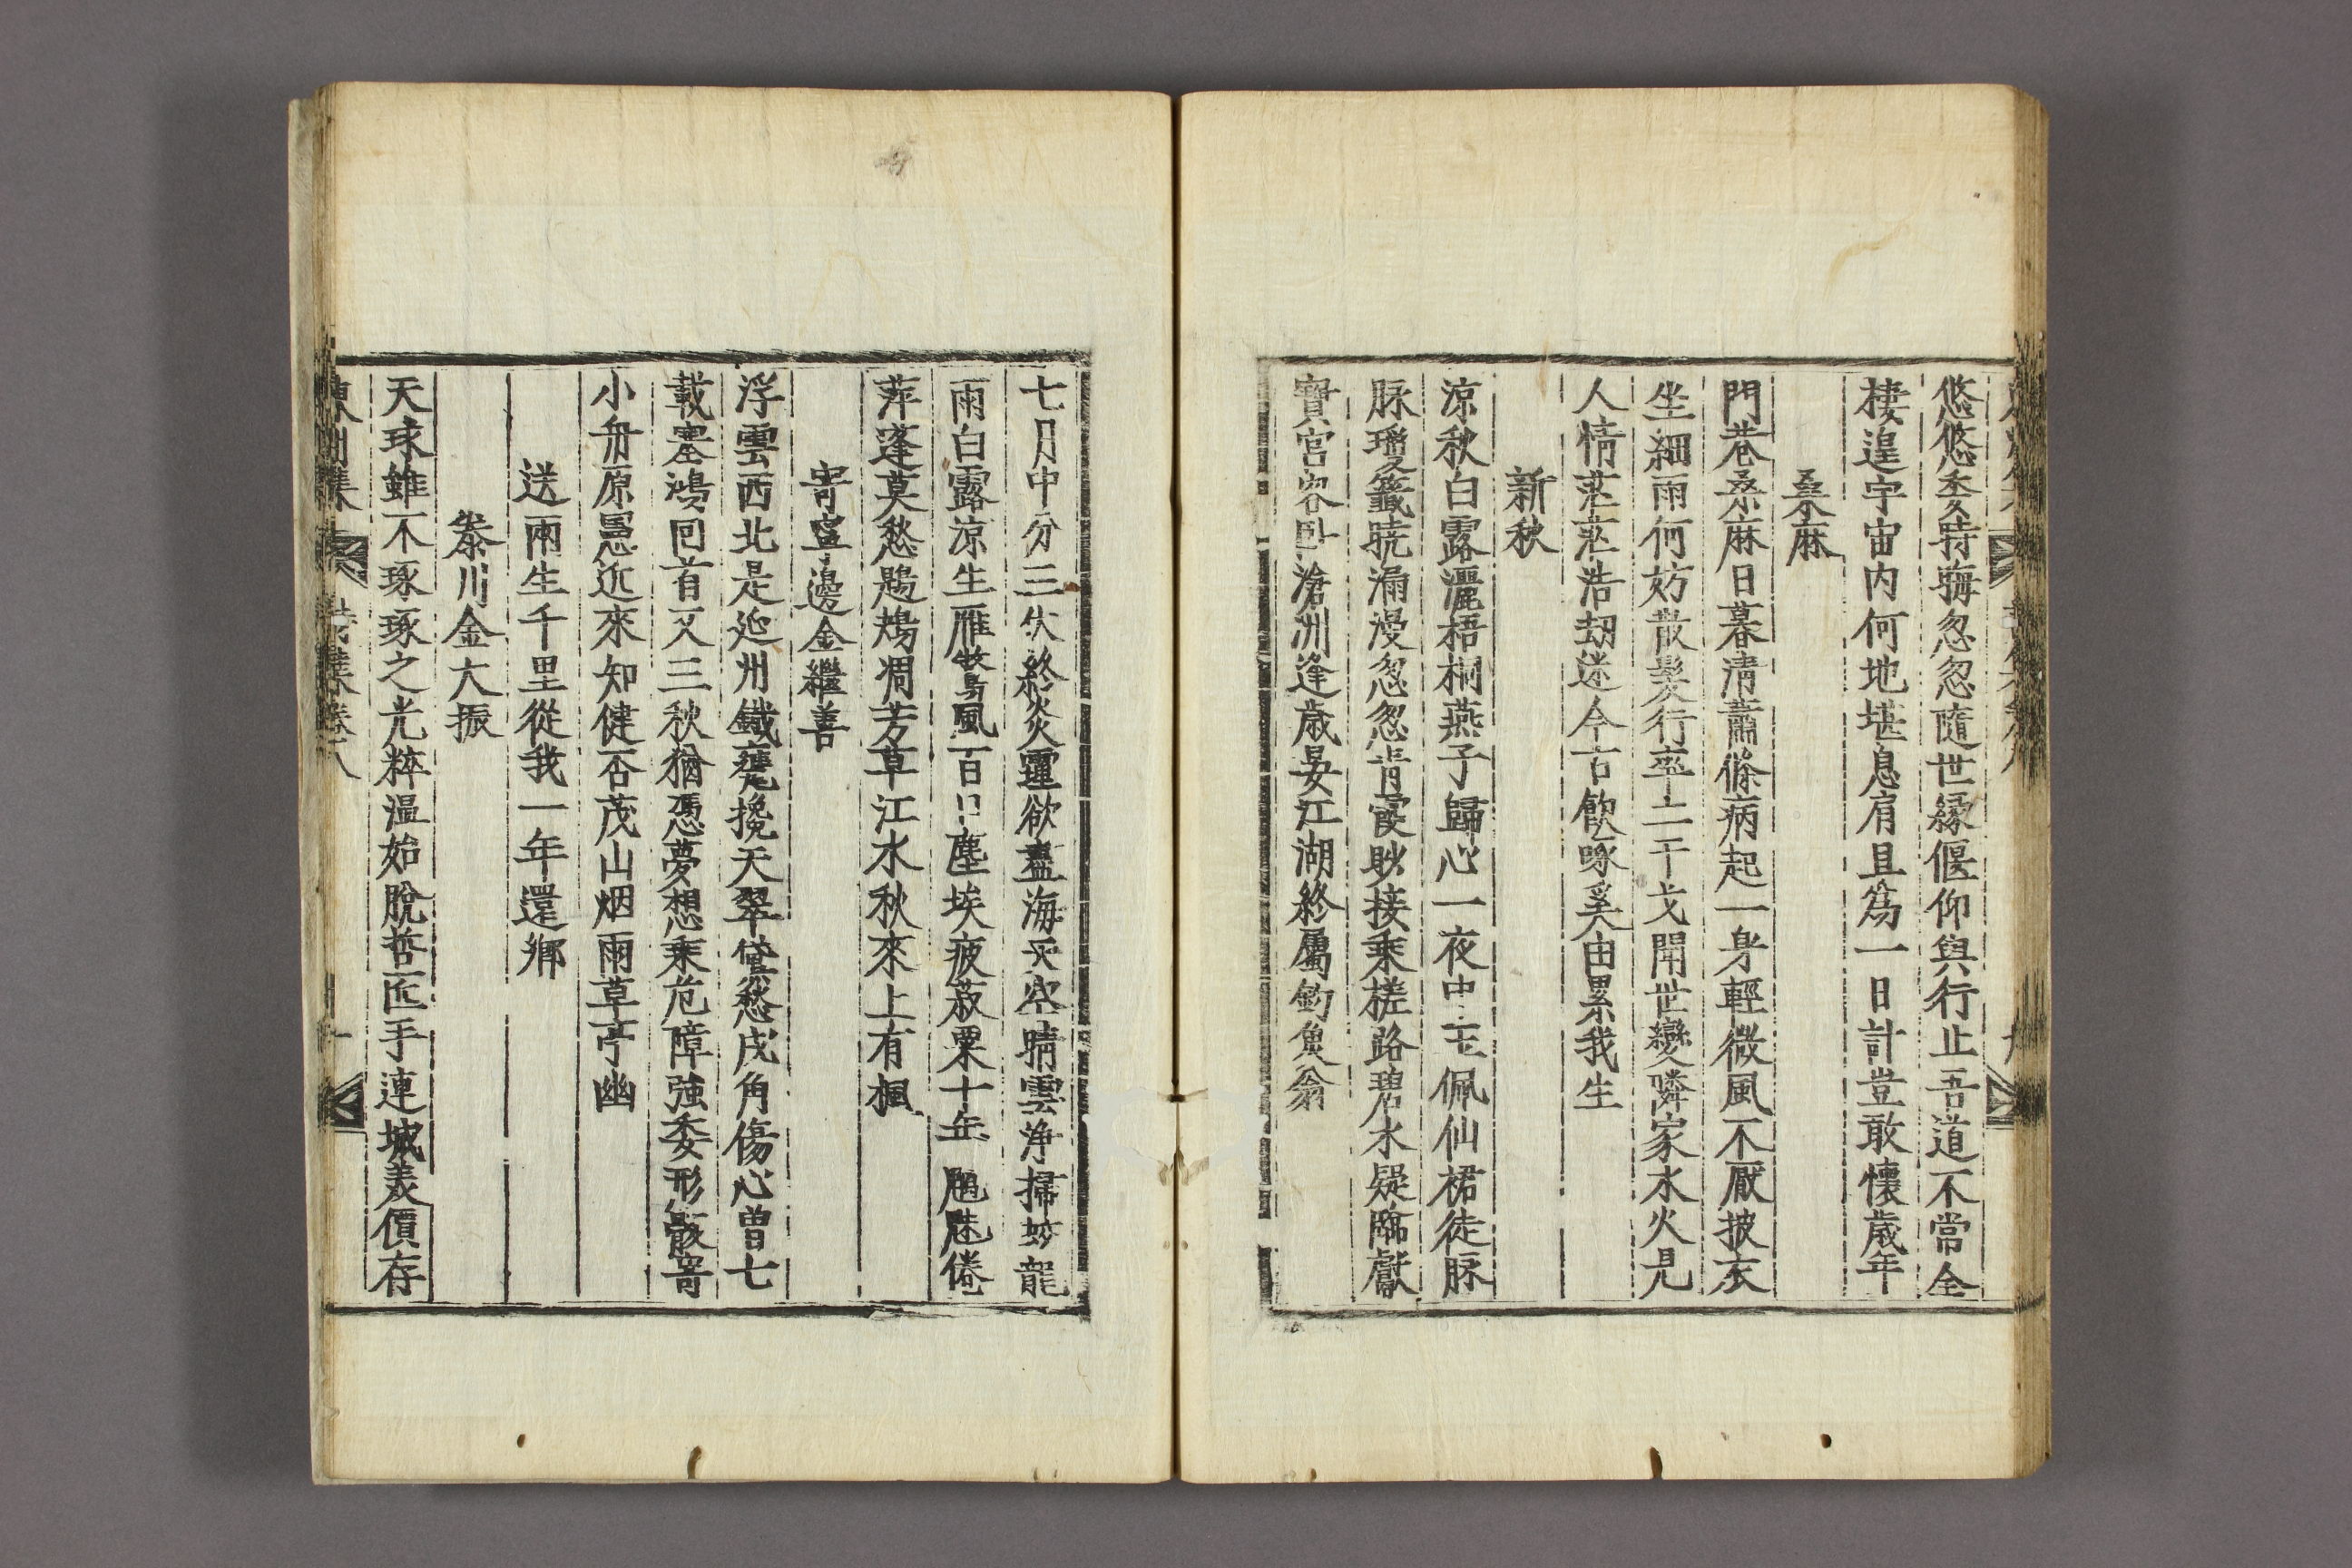 悠悠委時晦忽忽隨世緣偃仰與行止吾道不當全
棲遑宇宙內何地堪息肩且爲一日計豈敢懷歲年
桑麻
門巷桑麻日暮淸蕭條病起一身輕微風不厭披衣
坐細雨何妨散髮行率土干戈開世變隣家水火見
人情茫茫浩劫迷今古飮啄奚由累我生
新秋
凉秋白露灑梧桐燕子歸心一夜中玉佩仙裙徒脉
脉瓊籤曉漏漫忽忽靑霞眇接乘槎路碧水疑臨獻
寶宮客臥滄洲逢歲晏江湖終屬釣魚翁
七月中分三伏終炎靈欲盡海天空晴雲淨掃龍
雨白露凉生雁鶩風百口塵埃疲菽粟十年魑魅倦
萍蓬莫愁鶗鴂凋芳草江水秋來上有楓
寄寧邊金繼善
浮雲西北是延州鐵甕攙天翠黛愁戍角傷心曾七
載塞鴻回首又三秋猶憑夢想乘危障強委形骸寄
小舟原隰近來知健否茂山烟雨草亭幽
送兩生千里從我一年還鄕
泰川金大振
天球雖不琢琢之光粹溫始脫哲匠手連城美價存
東州集 詩集卷八